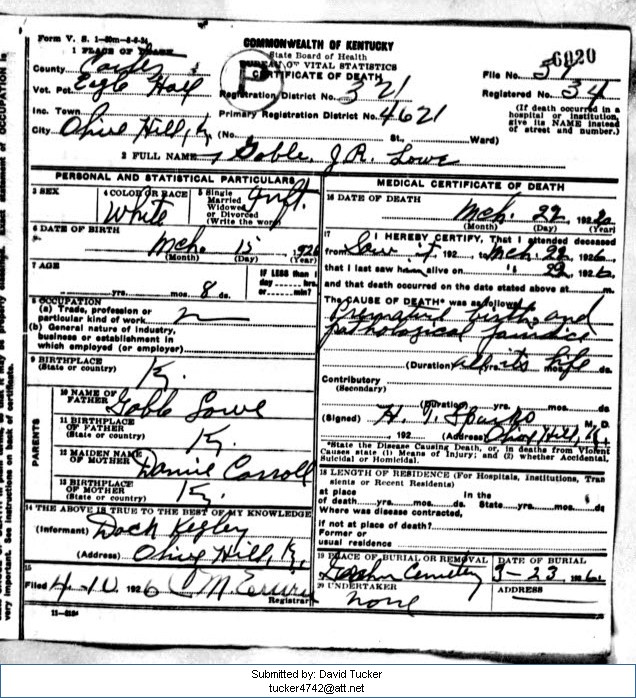 Form V. S. 1-50m-6-6-24
1 PLACE OF DEATH
COMMONWEALTH OF KENTUCKY
State Board of Health
BUREAU OF VITAL STATISTICS
CERTIFICATE OF DEATH
6920
County Carter
File No.
Vot. Pct.
Registration District No. 321
Registered No. 34
Inc. Town
Primary Registration District No. 4621
(If death occurred in a hospital or institution, give its NAME instead of street and number.)
City Olive Hill, Ky (No. St. Ward)
2 FULL NAME Gable J.R. Lowe
PERSONAL AND STATISTICAL PARTICULARS
3 SEX
4 COLOR OR RACE
White
5 Single
Married
Widowed
or Divorced
(Write the word)
6 DATE OF BIRTH
Mch. 15, 1926
(Month) (Day) (Year)
7 AGE
yrs. mos. 8 ds.
IF LESS than 1
day hrs.
or min?
8 OCCUPATION
(a) Trade, profession or
particular kind of work
(b) General nature of industry,
business or establishment in
which employed (or employer)
9 BIRTHPLACE
(State or country)
Ky.
PARENTS
10 NAME OF
FATHER Gable Lowe
11 BIRTHPLACE
OF FATHER
(State or country) Ky.
12 MAIDEN NAME
OF MOTHER Carroll
13 BIRTHPLACE
OF MOTHER
(State or country) Ky.
14 THE ABOVE IS TRUE TO THE BEST OF MY KNOWLEDGE
(Informant) Dock Kegley
(Address) Olive Hill, Ky.
15
Filed 4-10 1926
Registrar
11-2124
MEDICAL CERTIFICATE OF DEATH
16 DATE OF DEATH
Mch. 22, 192
(Month) (Day) (Year)
17 I HEREBY CERTIFY, That I attended deceased
from 192 to Mch. 22 1926,
that I last saw h alive on " 22 1926,
and that death occurred on the date stated above at m.
The CAUSE OF DEATH* was as follows:
Premature birth and
pathological jaundice
(Duration) all its life yrs. mos. ds.
Contributory
(Secondary)
(Duration) yrs. mos. ds.
(Signed) H. T. Sparks M. D.
, 192 (Address) Olive Hill, Ky.
*State the Disease Causing Death, or, in deaths from Violent
Causes state (1) Means of Injury; and (2) whether Accidental,
Suicidal or Homicidal.
18 LENGTH OF RESIDENCE (For Hospitals, Institutions, Tran
sients or Recent Residents)
at place In the
of death yrs. mos. ds. State yrs. mos. ds.
Where was disease contracted,
if not at place of death?
Former or
usual residence
19 PLACE OF BURIAL OR REMOVAL
Cemetery
DATE OF BURIAL
3-23 1926
20 UNDERTAKER
none
ADDRESS
Submitted by: David Tucker
tucker4742@att.net